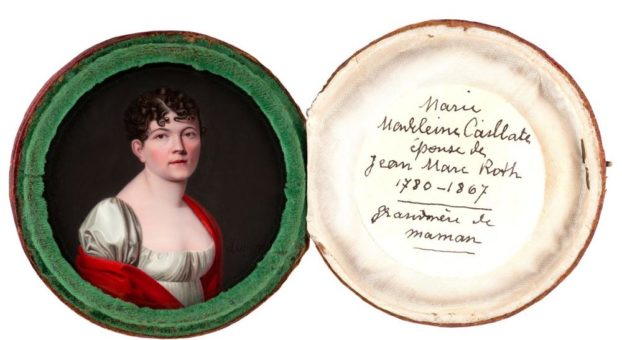 Marie
Madeleine Caillate
épouse de
Jean Marc Roth
1780-1867
grandmère de
maman